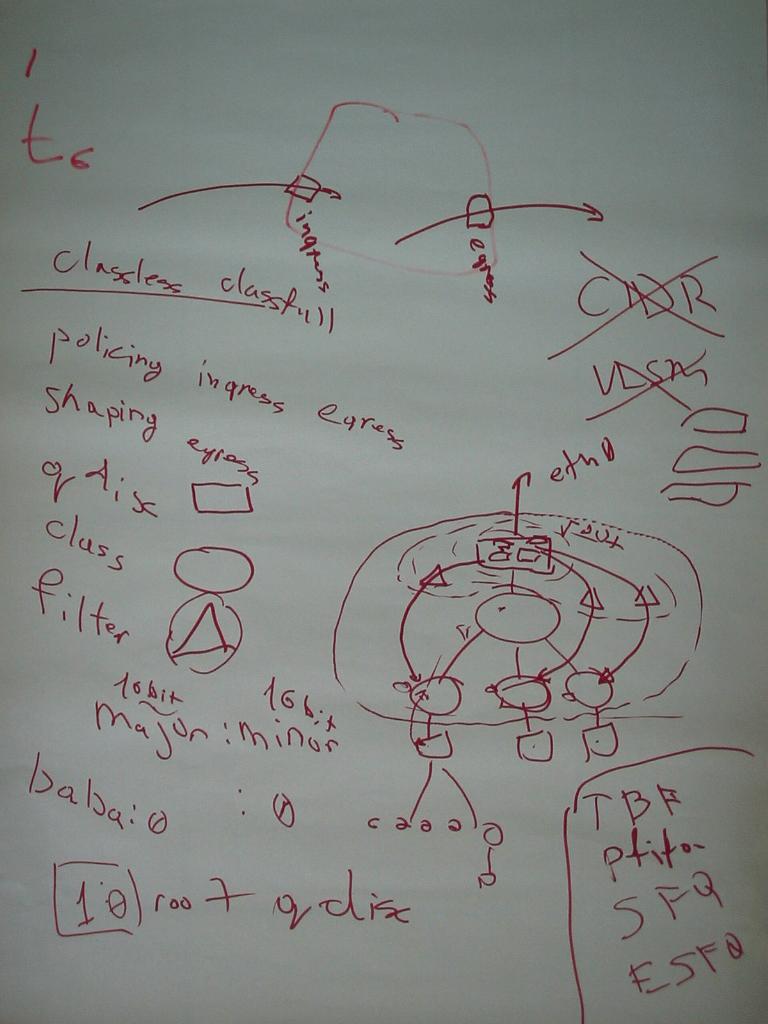 ingress
egress
classless classfull
CIDR
policing ingress egress
VLSM
shaping egress
eth0
qdisc
root
class
filter
16bit 16bit
major:minor
baba:0 :0
TBF
SFQ
ESFQ
1:0 root qdisc